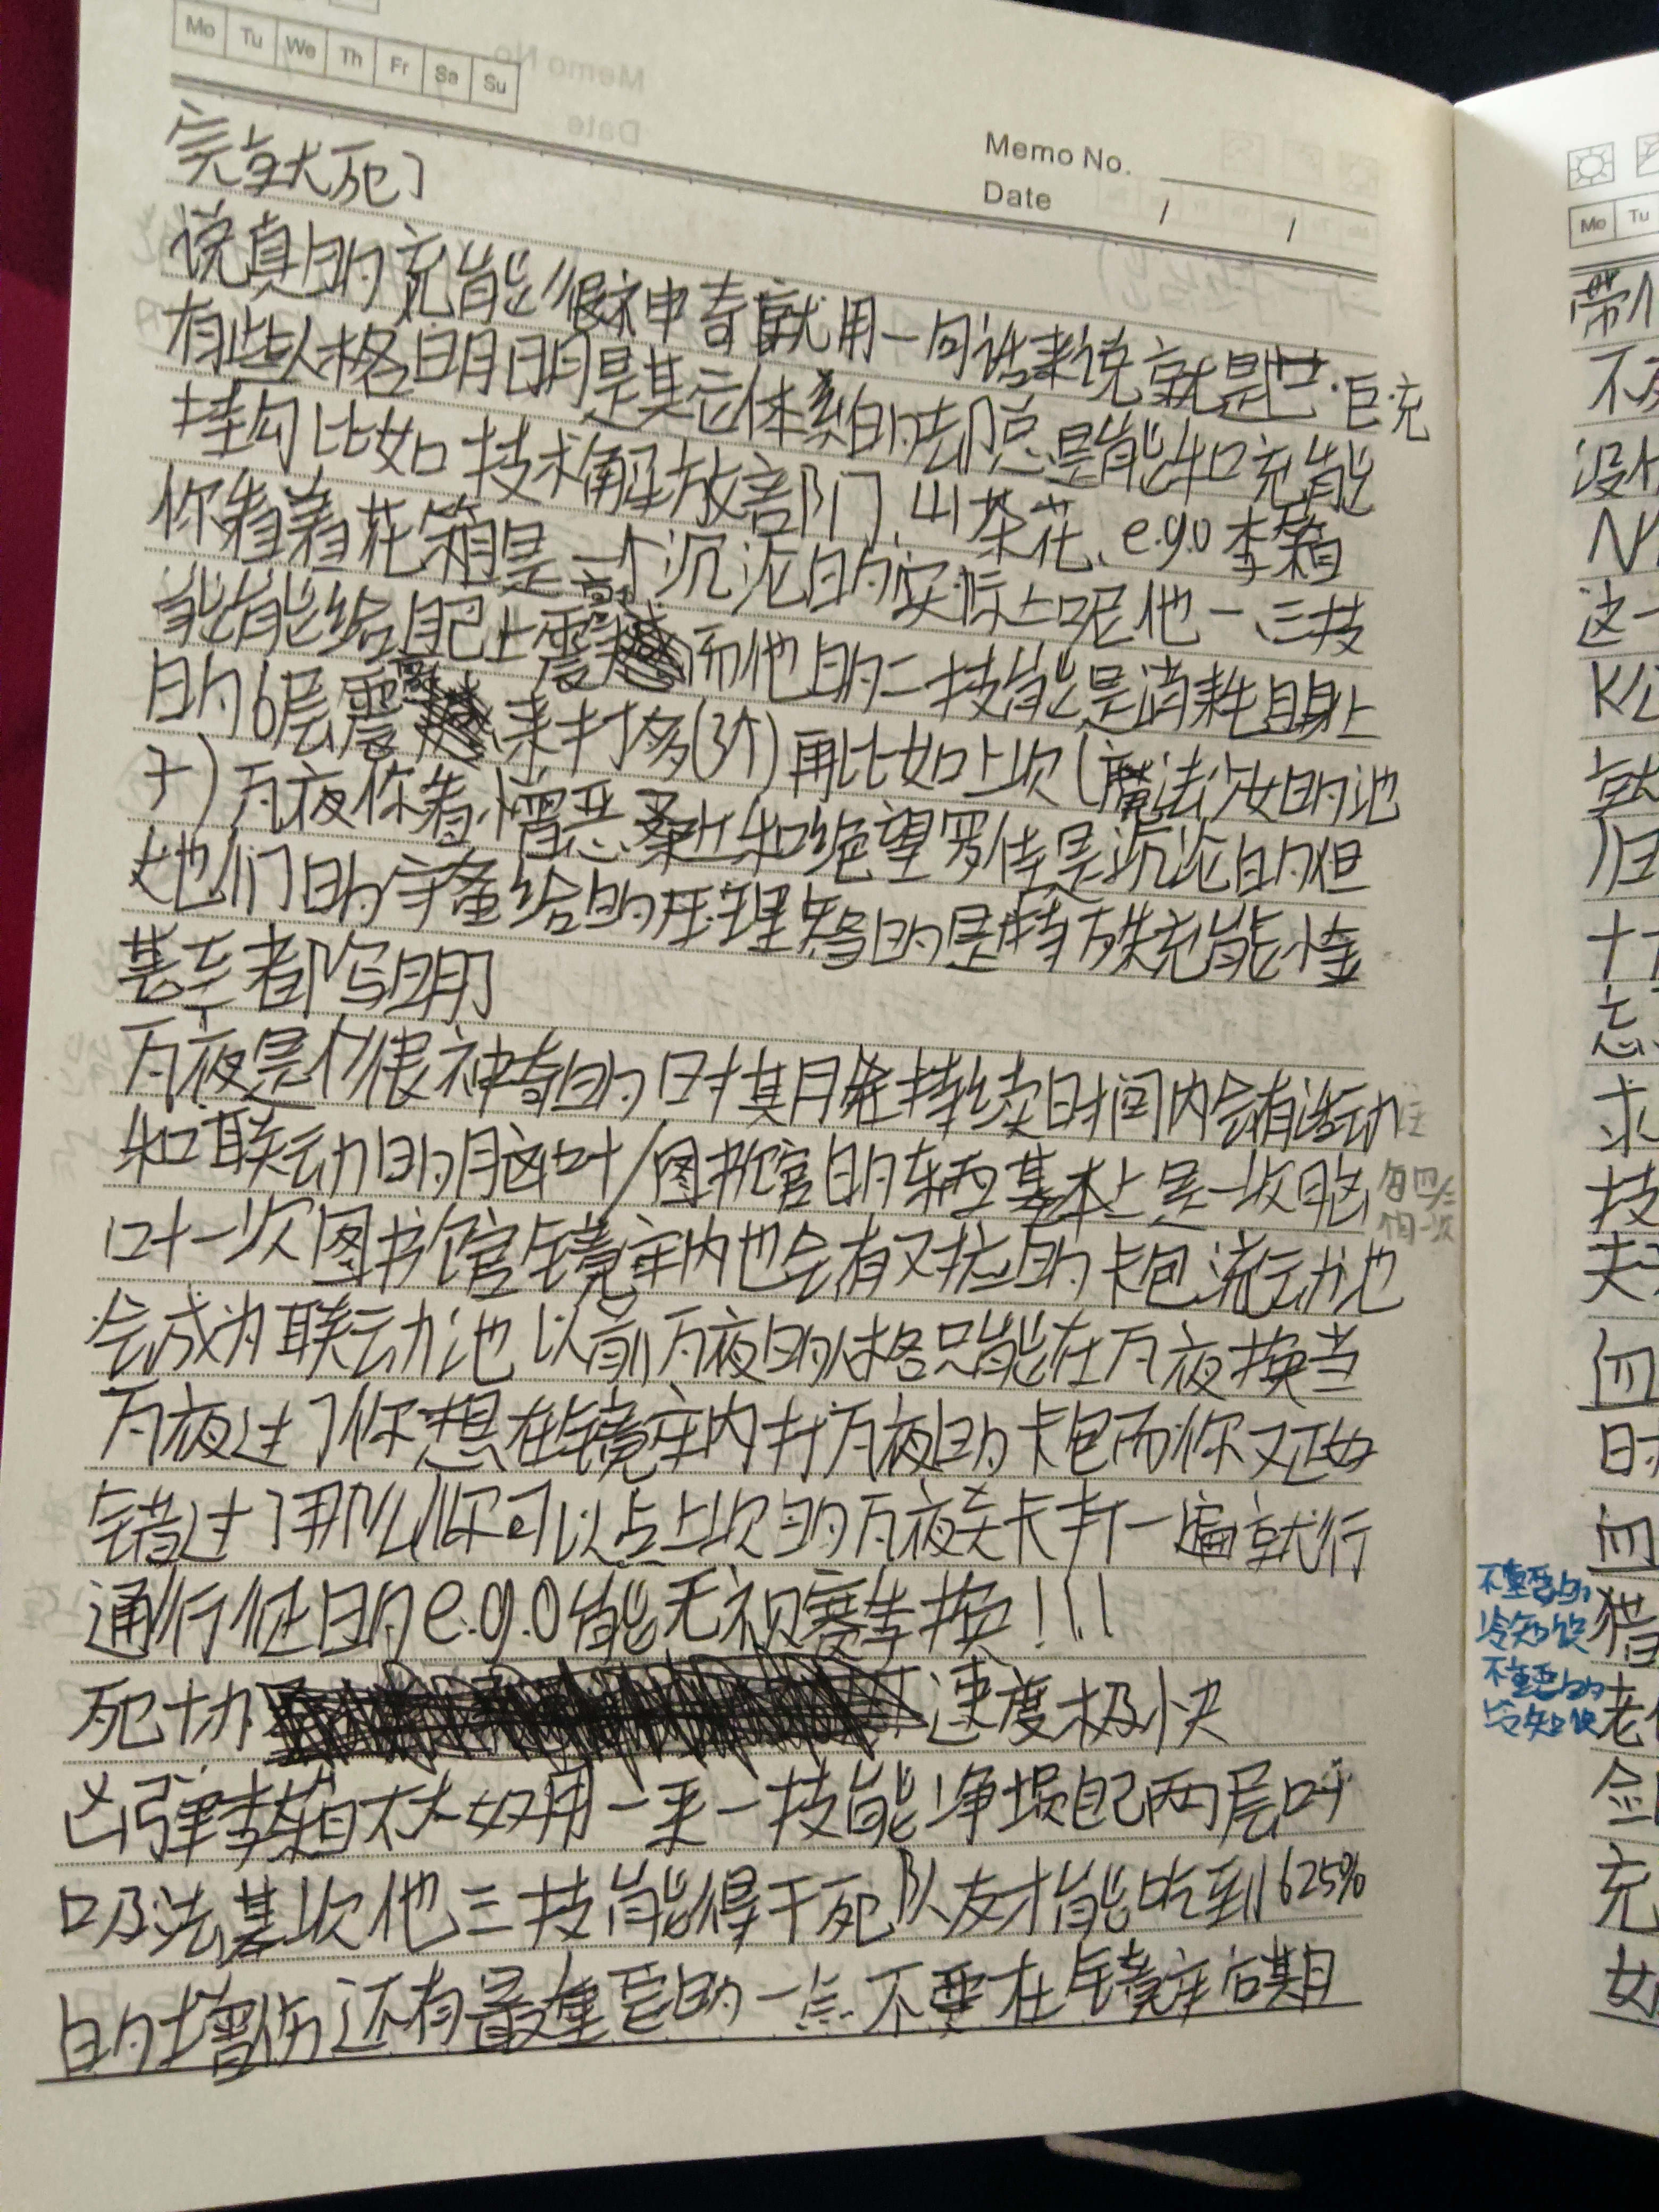 Mo Tu We Th Fr Sa Su
Memo No.
Date / /
完就死了
说真的充能很神奇就用一句话来说就是巴·巨充
有些人格明明是某它体系的却总是能和充能
挂勾比如技术解放部门,山茶花、e.g.o李箱
你看着花箱是一个沉沦的实际上呢他一、三技
能能给自己上震颤而他的二技能是消耗自身上
的6层震颤来打多(3个)再比如上次(魔法少女的池
子)万夜你看憎恶桑和绝望罗佳是沉沦的但
她们的守备给的压理智的是特殊充能小金
甚至都写明了
万夜是个很神奇的时期月维持续时间内会有活动
和联动的脑叶/图书馆的东西基本上是一次脑
叶一次图书馆镜牢内也会有对应的卡包流动池
会成为联动池以前万夜的人格只能在万夜换当
万夜过了你想在镜牢内打万夜的卡包而你又正好
错过了那么你可以点上次的万夜关卡打一遍就行
通行证的e.g.o能无视赛季换!!!
死协速度极快
凶弹李箱不太好用一来一技能净损自己两层呼
吸法其次他三技能得干死队友才能吃到625%
的增伤还有最重要的一点不要在镜牢后期
不重要的
冷知识
不重要的
冷知识
Mo Tu
带
不
没
这一
K公
就
归
忘
求
技
夫
血
时
血
猎
老
剑
充
女